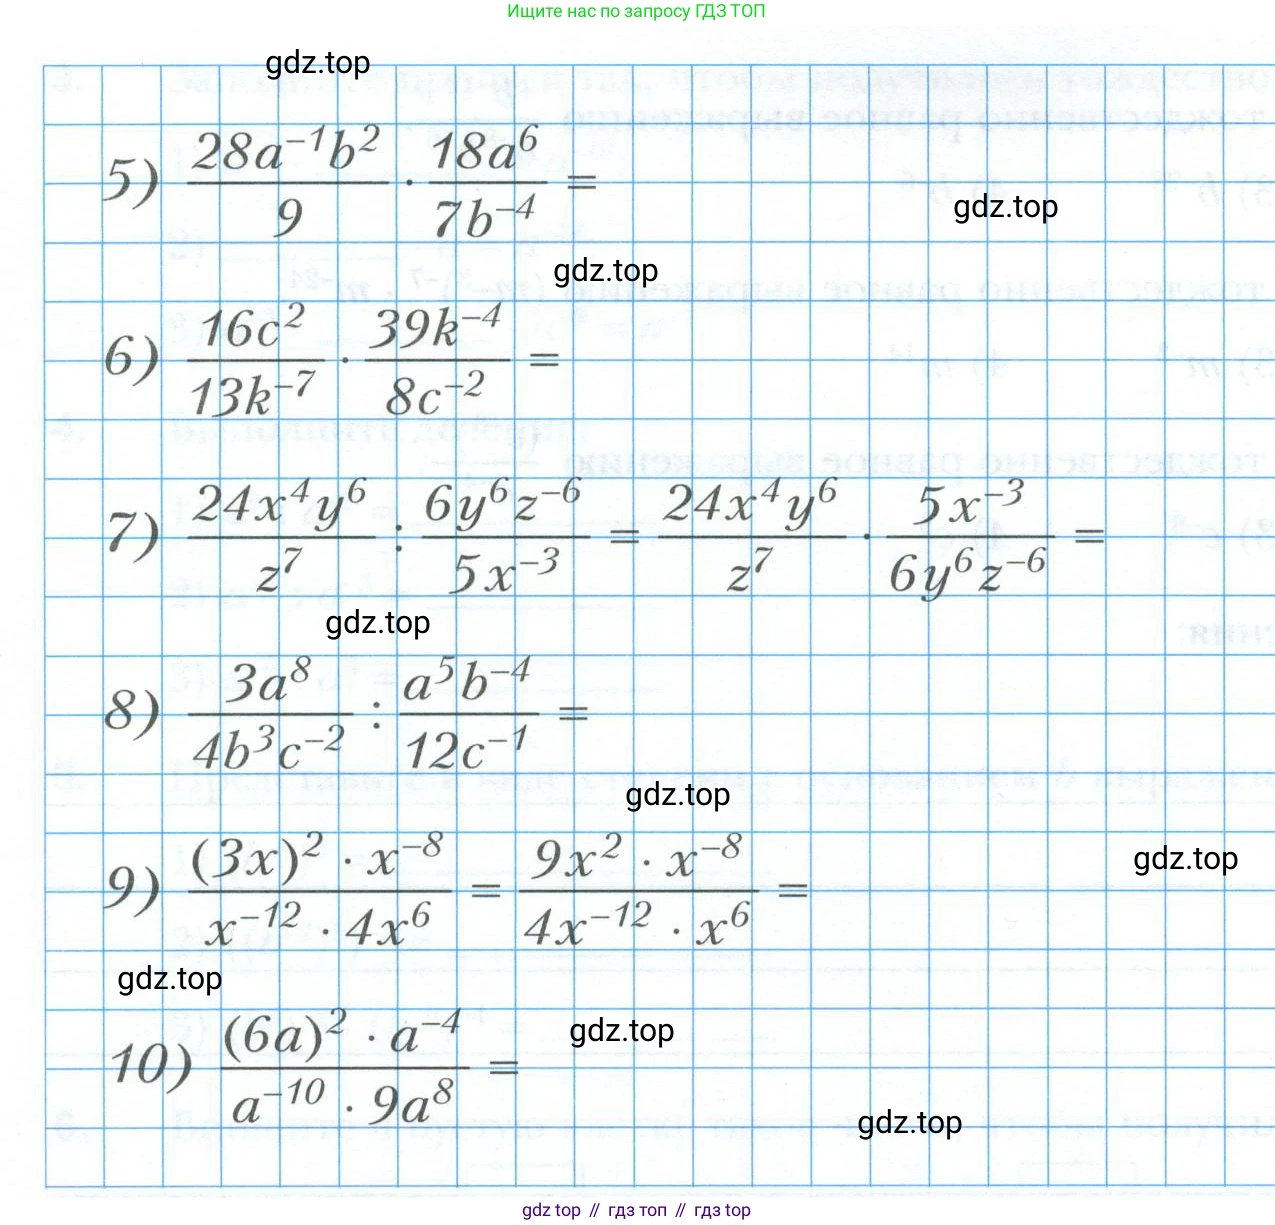 Ищите нас по запросу ГДЗ ТОП
gdz.top
5) \frac{28a^{-1}b^2}{9} · \frac{18a^6}{7b^{-4}} =
gdz.top
gdz.top
6) \frac{16c^2}{13k^{-7}} · \frac{39k^{-4}}{8c^{-2}} =
7) \frac{24x^4y^6}{z^7} : \frac{6y^6z^{-6}}{5x^{-3}} = \frac{24x^4y^6}{z^7} · \frac{5x^{-3}}{6y^6z^{-6}} =
gdz.top
8) \frac{3a^8}{4b^3c^{-2}} : \frac{a^5b^{-4}}{12c^{-1}} =
gdz.top
9) \frac{(3x)^2 · x^{-8}}{x^{-12} · 4x^6} = \frac{9x^2 · x^{-8}}{4x^{-12} · x^6} =
gdz.top
gdz.top
10) \frac{(6a)^2 · a^{-4}}{a^{-10} · 9a^8} =
gdz.top
gdz.top
gdz top // гдз топ // gdz top